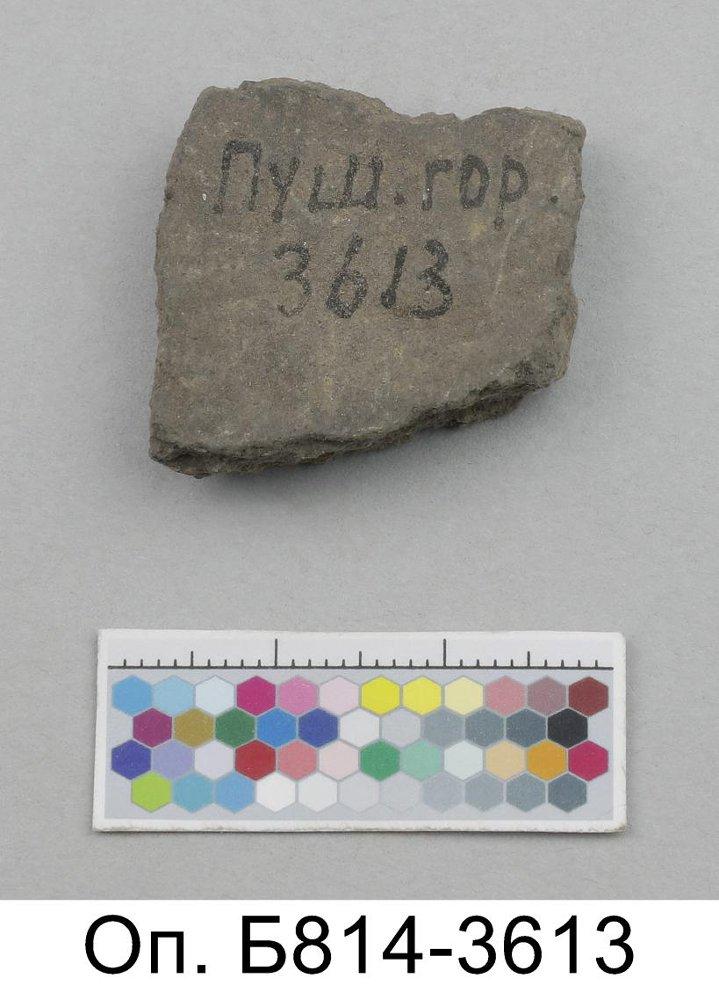 Пуш. гор.
3613
Оп. Б814-3613